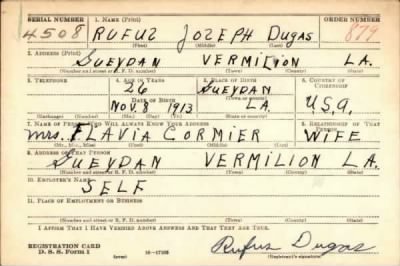 SERIAL NUMBER 1. NAME (Print) ORDER NUMBER
4508 RUFUZ JOZEPH DUGAS 879
(First) (Middle) (Last)
2. ADDRESS (Print)
GUEYDAN VERMILION LA.
(Number and street or R. F. D. number) (Town) (County) (State)
3. TELEPHONE 4. AGE IN YEARS 5. PLACE OF BIRTH 6. COUNTRY OF CITIZENSHIP
26 GUEYDAN
DATE OF BIRTH (Town or county)
NOV. 8 1913 LA. U.S.A.
(Exchange) (Number) (Mo.) (Day) (Yr.) (State or country)
7. NAME OF PERSON WHO WILL ALWAYS KNOW YOUR ADDRESS 8. RELATIONSHIP OF THAT PERSON
Mrs. FLAVIA CORMIER WIFE
(Mr., Mrs., Miss) (First) (Middle) (Last)
9. ADDRESS OF THAT PERSON
GUEYDAN VERMILION LA.
(Number and street or R. F. D. number) (Town) (County) (State)
10. EMPLOYER'S NAME
SELF
11. PLACE OF EMPLOYMENT OR BUSINESS
(Number and street or R. F. D. number) (Town) (County) (State)
I AFFIRM THAT I HAVE VERIFIED ABOVE ANSWERS AND THAT THEY ARE TRUE.
REGISTRATION CARD
D. S. S. Form 1 (over) 16-17105 Rufuz Dugas
(Registrant's signature)